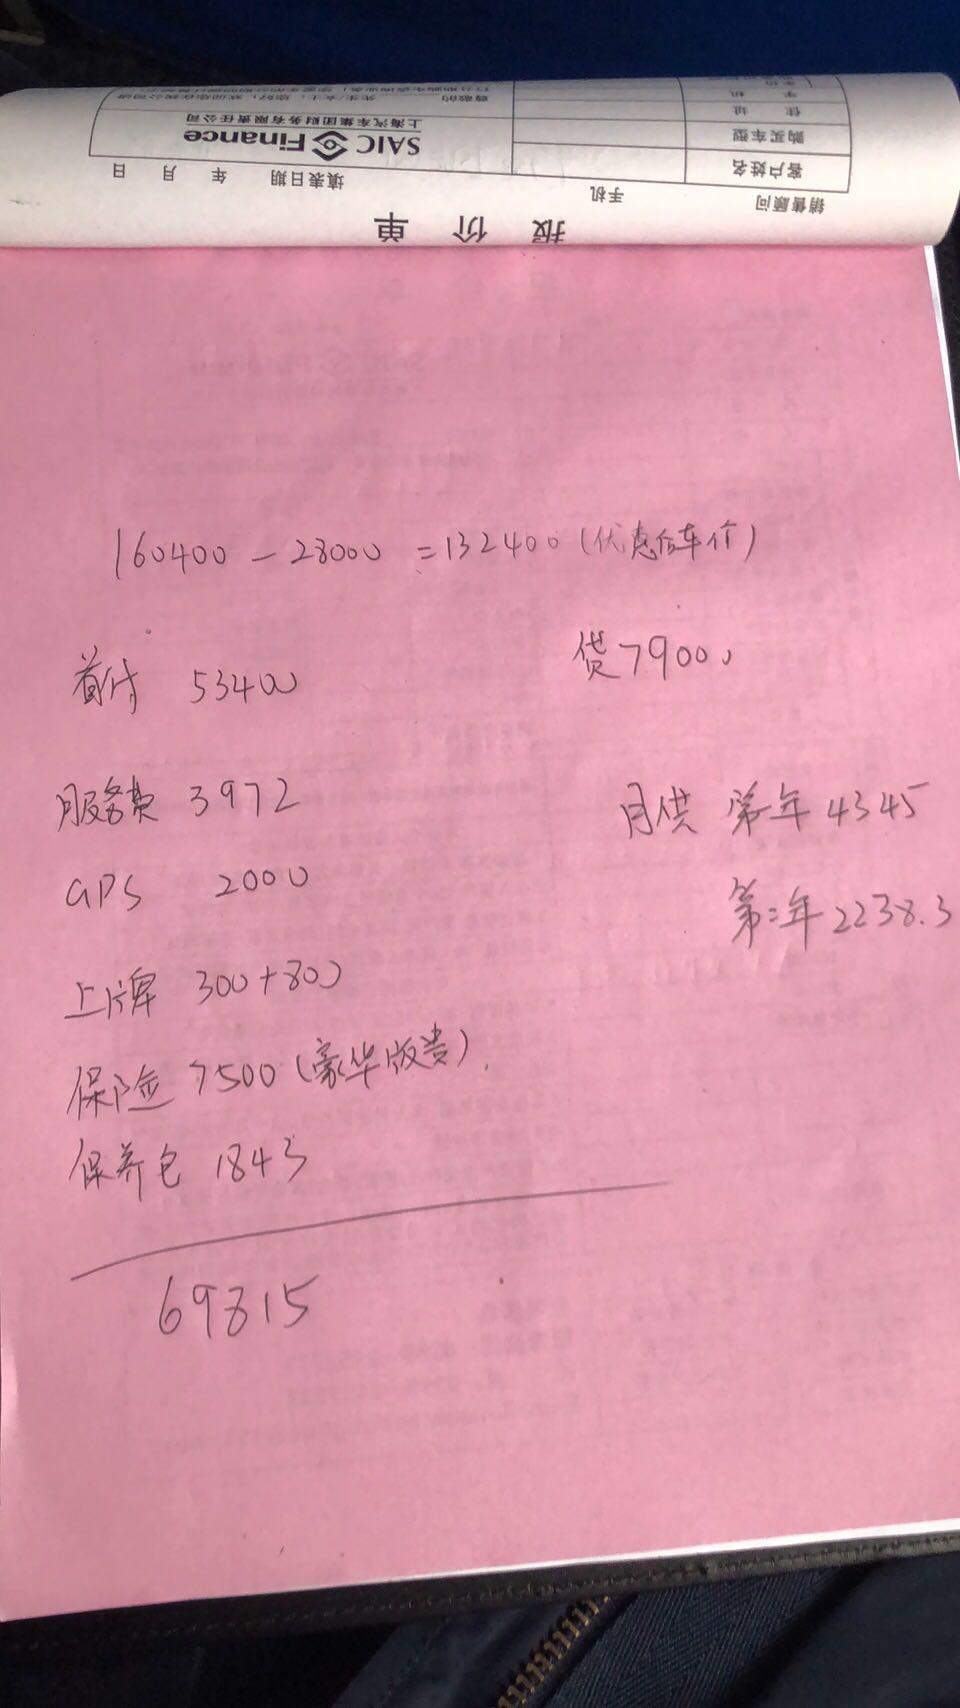 报价单
销售顾问 手机 填表日期 年 月 日
客户姓名
购买车型
住址
手机
SAIC Finance
上海汽车集团财务有限责任公司
尊敬的 先生/女士：您好！
160400 - 28000 = 132400 (优惠后车价)
首付 53400 贷79000
服务费 3972 月供 第一年 4345
GPS 2000 第二年 2238.3
上牌 300+800
保险 7500 (豪华版贵).
保养包 1843
69815